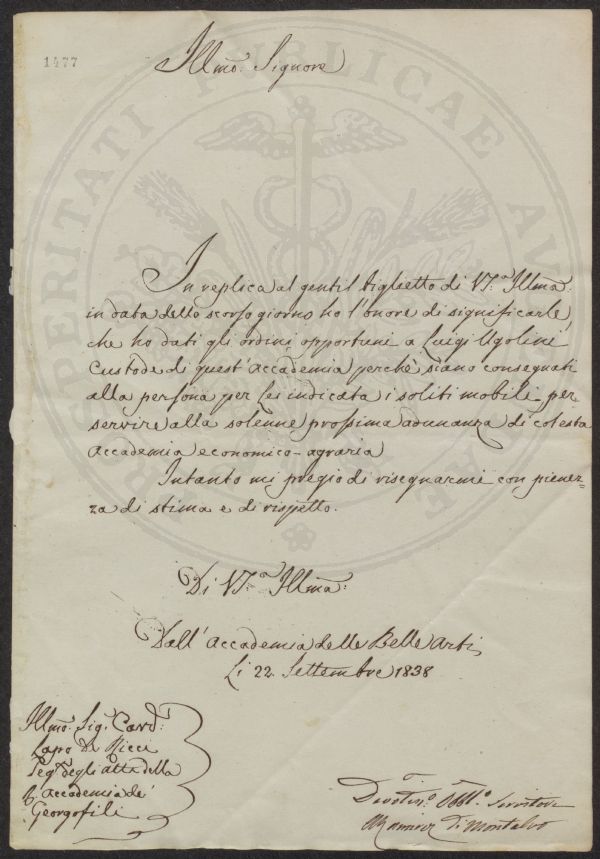 1477
Illmo. Signore
In replica al gentil biglietto di V.S.a Illma:
in data dello scorso giorno ho l'onore di significarle,
che ho dati gli ordini opportuni a Luigi Ugolini
Custode di quest'Accademia perchè siano consegnati
alla persona per Lei indicata i soliti mobili per
servire alla solenne prossima adunanza di cotesta
Accademia economico-agraria
Intanto mi pregio di risegnarmi con pienez-
za di stima e di rispetto.
Di V.S.a Illma:
Dall'Accademia delle Belle Arti
Li 22. Settembre 1838
Illmo. Sig.r Cavd:
Lapo De Ricci
Seg.o degli atti della
Accademia de'
Georgofili
Devotis.o Obbl.o Servitore
Ramirez Di Montalvo
PROSPERITATI PUBLICAE AUGENDAE